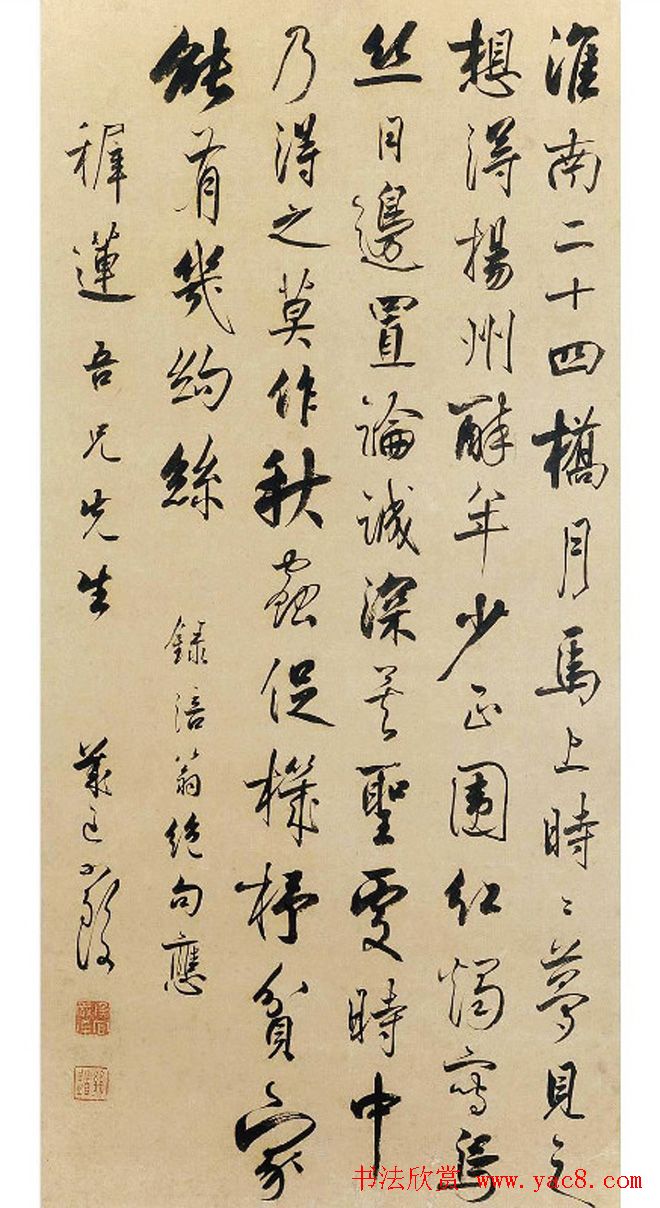 淮南二十四橋月馬上時〻夢見之
想得揚州醉年少正圍紅燭寫烏
丝日邊置論誠深矣聖處時中
乃得之莫作秋蟲促機杼貧家
能有幾絇絲 録涪翁絕句應
稺蓮吾兄先生
书法欣赏 www.yac8.com